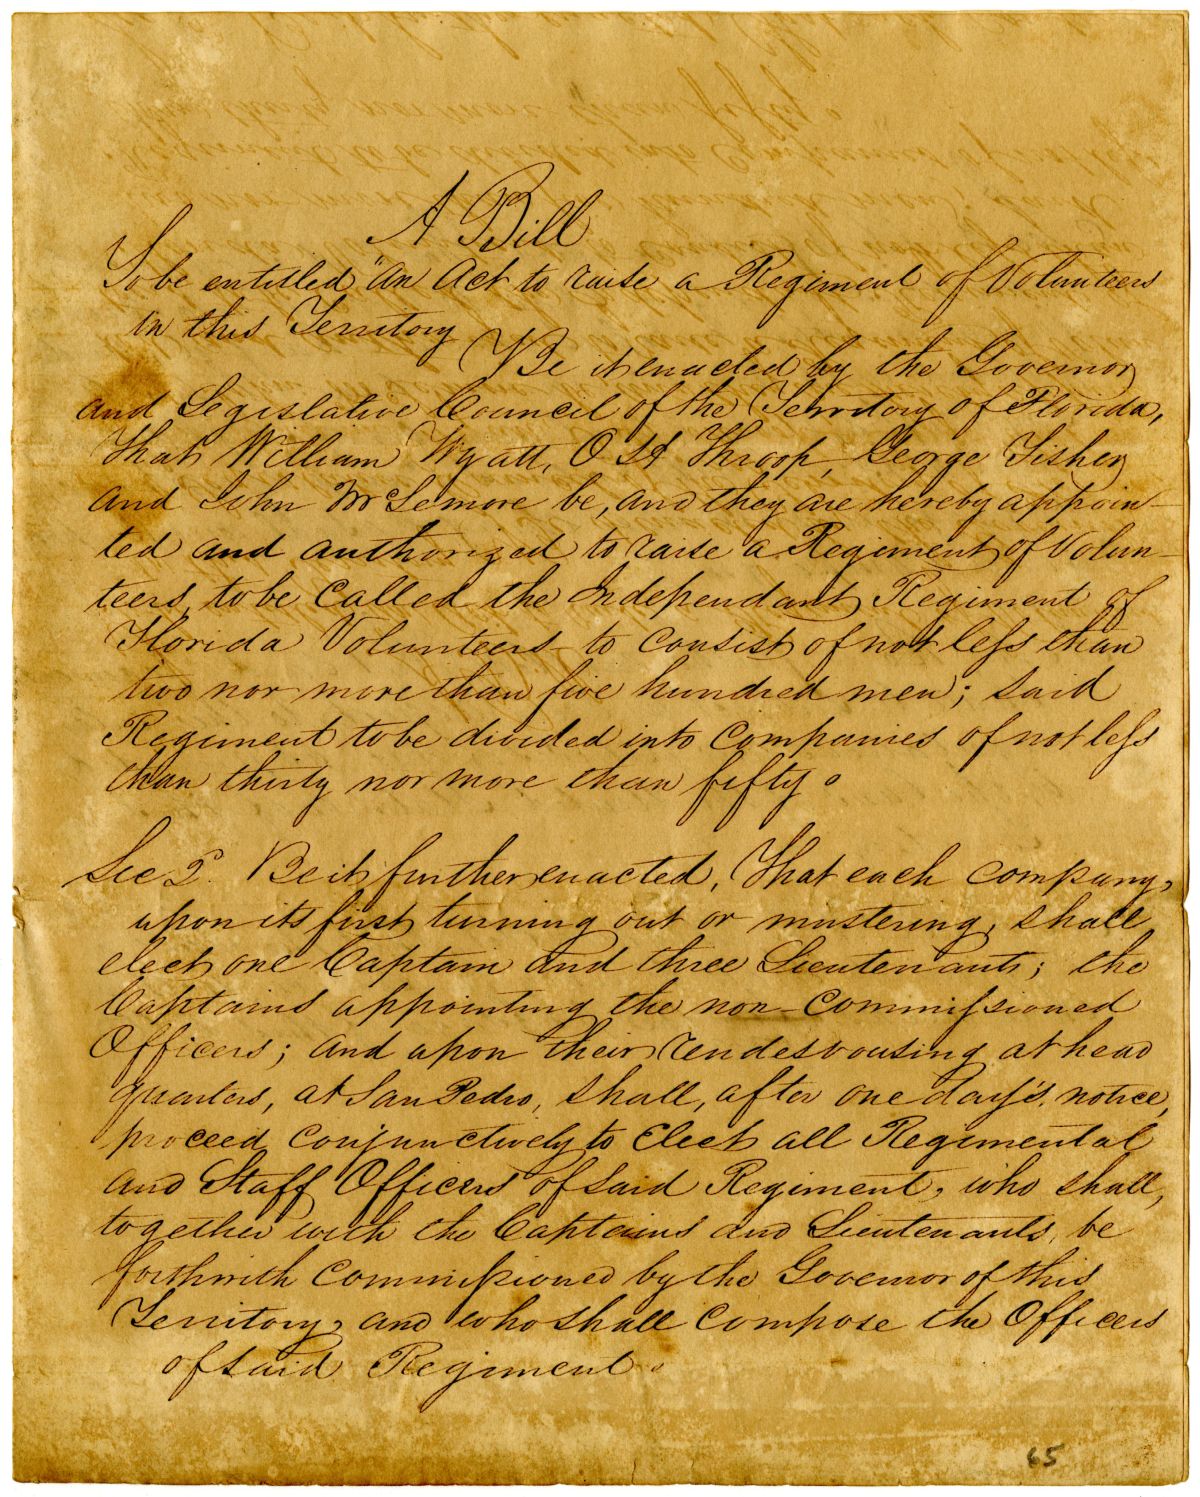 A Bill
To be entitled "An Act to raise a Regiment of Volunteers
in this Territory
Be it enacted by the Governor
and Legislative Council of the Territory of Florida,
That William Wyatt, O H Throop, George Fisher
and John McLemore be, and they are hereby appoin-
ted and authorized to raise a Regiment of Volun-
teers, to be called the Independant Regiment of
Florida Volunteers to consist of not less than
two nor more than five hundred men; said
Regiment to be divided into Companies of not less
than thirty nor more than fifty.
Sec 2. Be it further enacted, That each company,
upon its first turning out or mustering, shall
elect one Captain and three Lieutenants; the
Captains appointing the non-commissioned
Officers; and upon their rendesvousing at head
quarters, at San Pedro, shall, after one day's notice,
proceed conjunctively to Elect all Regimental
and Staff Officers of said Regiment, who shall,
together with the Captains and Lieutenants, be
forthwith commissioned by the Governor of this
Territory, and who shall compose the Officers
of said Regiment.
65